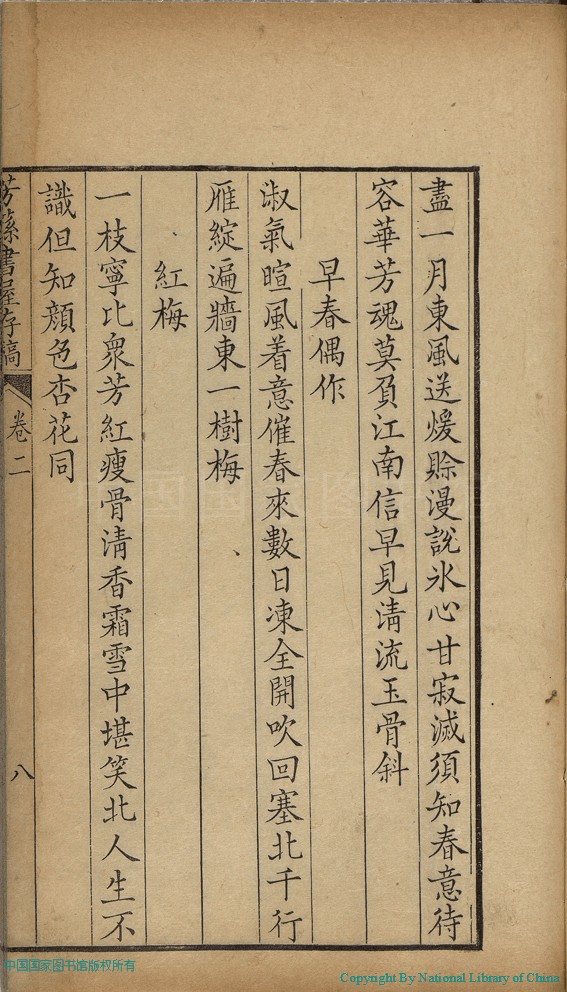 盡一月東風送煖賒漫說氷心甘寂滅須知春意待
容華芳魂莫負江南信早見淸流玉骨斜
早春偶作
淑氣暄風着意催春來數日凍全開吹回塞北千行
雁綻遍牆東一樹梅
紅梅
一枝寧比衆芳紅瘦骨淸香霜雪中堪笑北人生不
識但知顔色杏花同
芳蓀書屋存稿
卷二
八
中国国家图书馆版权所有
Copyright By National Library of China